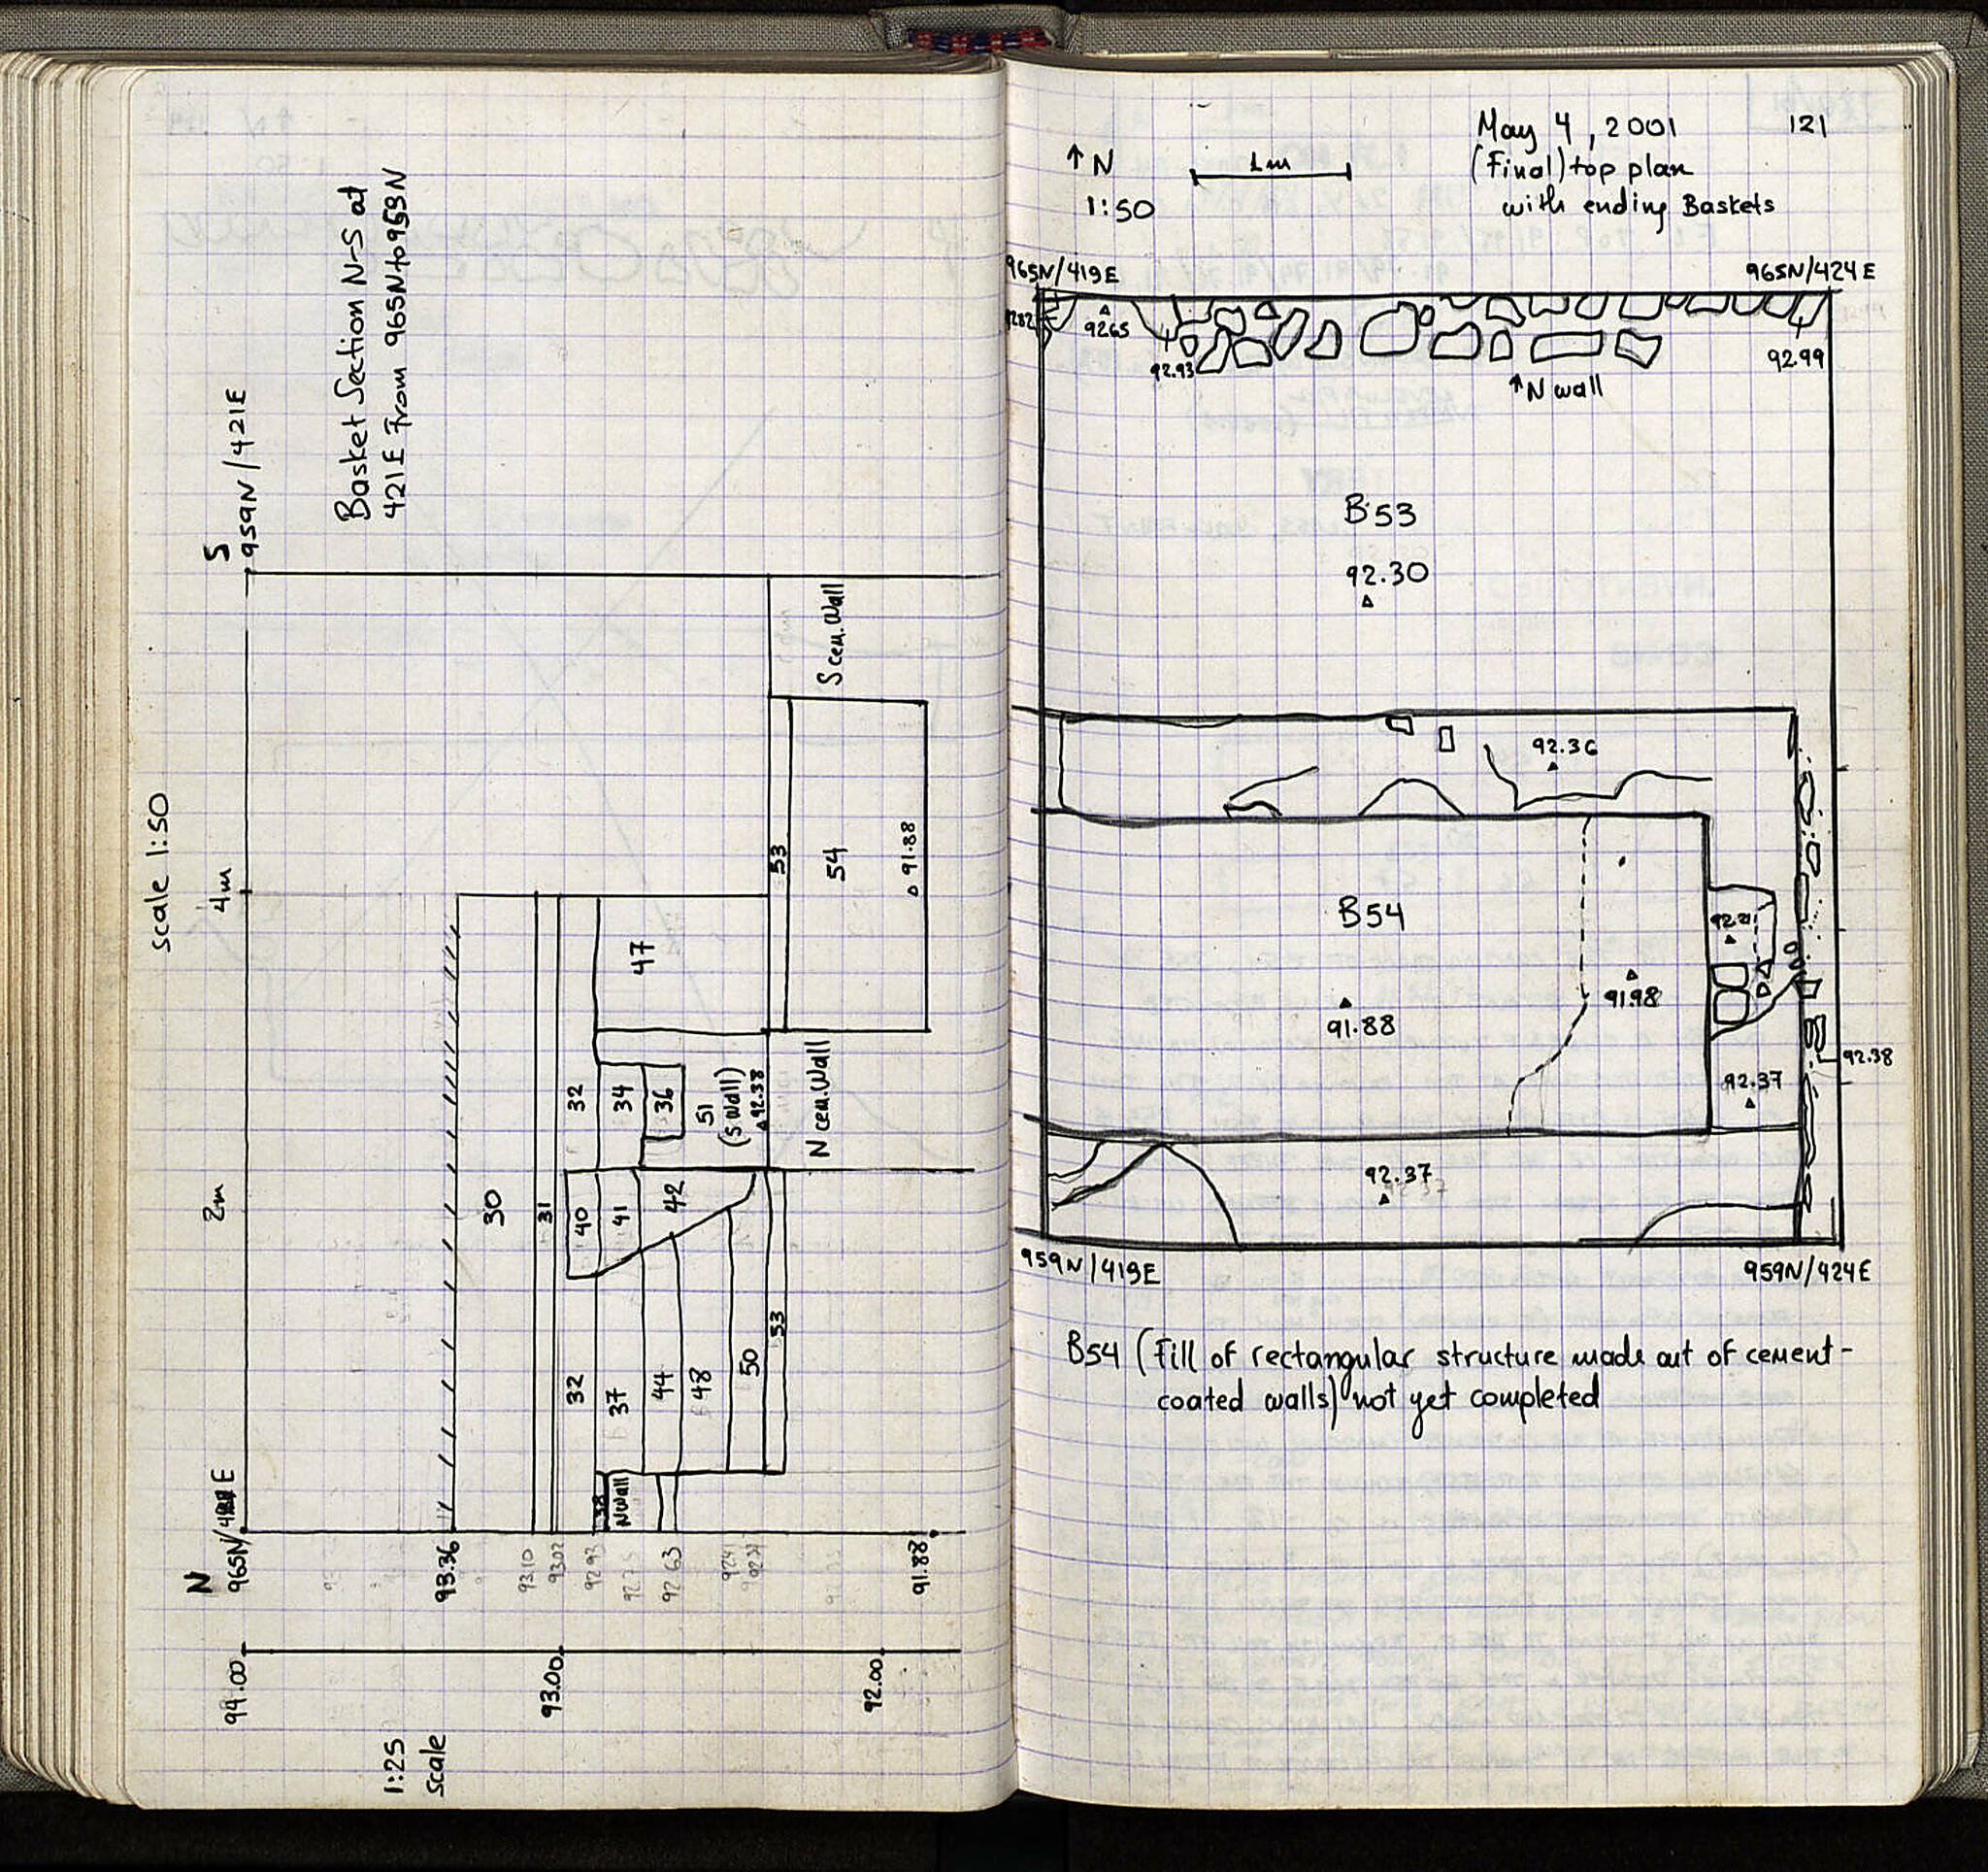 Basket Section N-S at
421E From 965N to 959N
scale 1:50
S
959N/421E
4m
2m
N
965N/
E
30
31
32
32
34
36
37
38
N wall
40
41
42
44
47
48
50
51
(S wall)
92.38
53
53
54
91.88
S cem. Wall
N cem. Wall
93.36
93.10
93.02
92.93
92.63
91.88
94.00
93.00
92.00
1:25
scale
May 4, 2001
121
(Final) top plan
with ending Baskets
↑N
1m
1:50
965N/419E
965N/424E
92.82
92.65
92.93
92.99
↑N wall
B53
92.30
92.36
B54
92.21
91.98
91.88
92.38
92.37
92.37
959N/419E
959N/424E
B54 (Fill of rectangular structure made out of cement-
coated walls) not yet completed